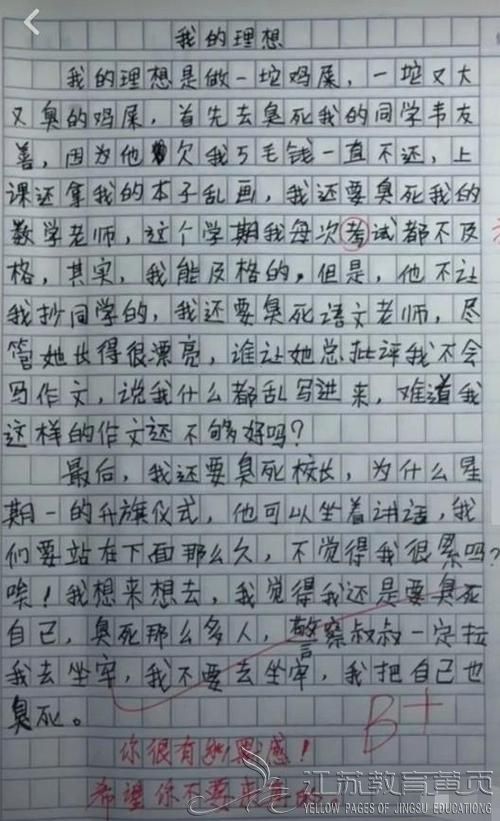 我的理想
我的理想是做一坨鸡屎，一坨又大
又臭的鸡屎，首先去臭死我的同学韦友
善，因为他欠我5毛钱一直不还，上
课还拿我的本子乱画，我还要臭死我的
数学老师，这个学期我每次考试都不及
格，其实，我能及格的，但是，他不让
我抄同学的，我还要臭死语文老师，尽
管她长得很漂亮，谁让她总批评我不会
写作文，说我什么都乱写进来，难道我
这样的作文还不够好吗？
最后，我还要臭死校长，为什么星
期一的升旗仪式，他可以坐着讲话，我
们要站在下面那么久，不觉得我很累吗？
唉！我想来想去，我觉得我还是要臭死
自己，臭死那么多人，警察叔叔一定拉
我去坐牢，我不要去坐牢，我把自己也
臭死。
B+
你很有幽默感！
希望你不要来真的！
江苏教育黄页
YELLOW PAGES OF JINGSU EDUCATIONG